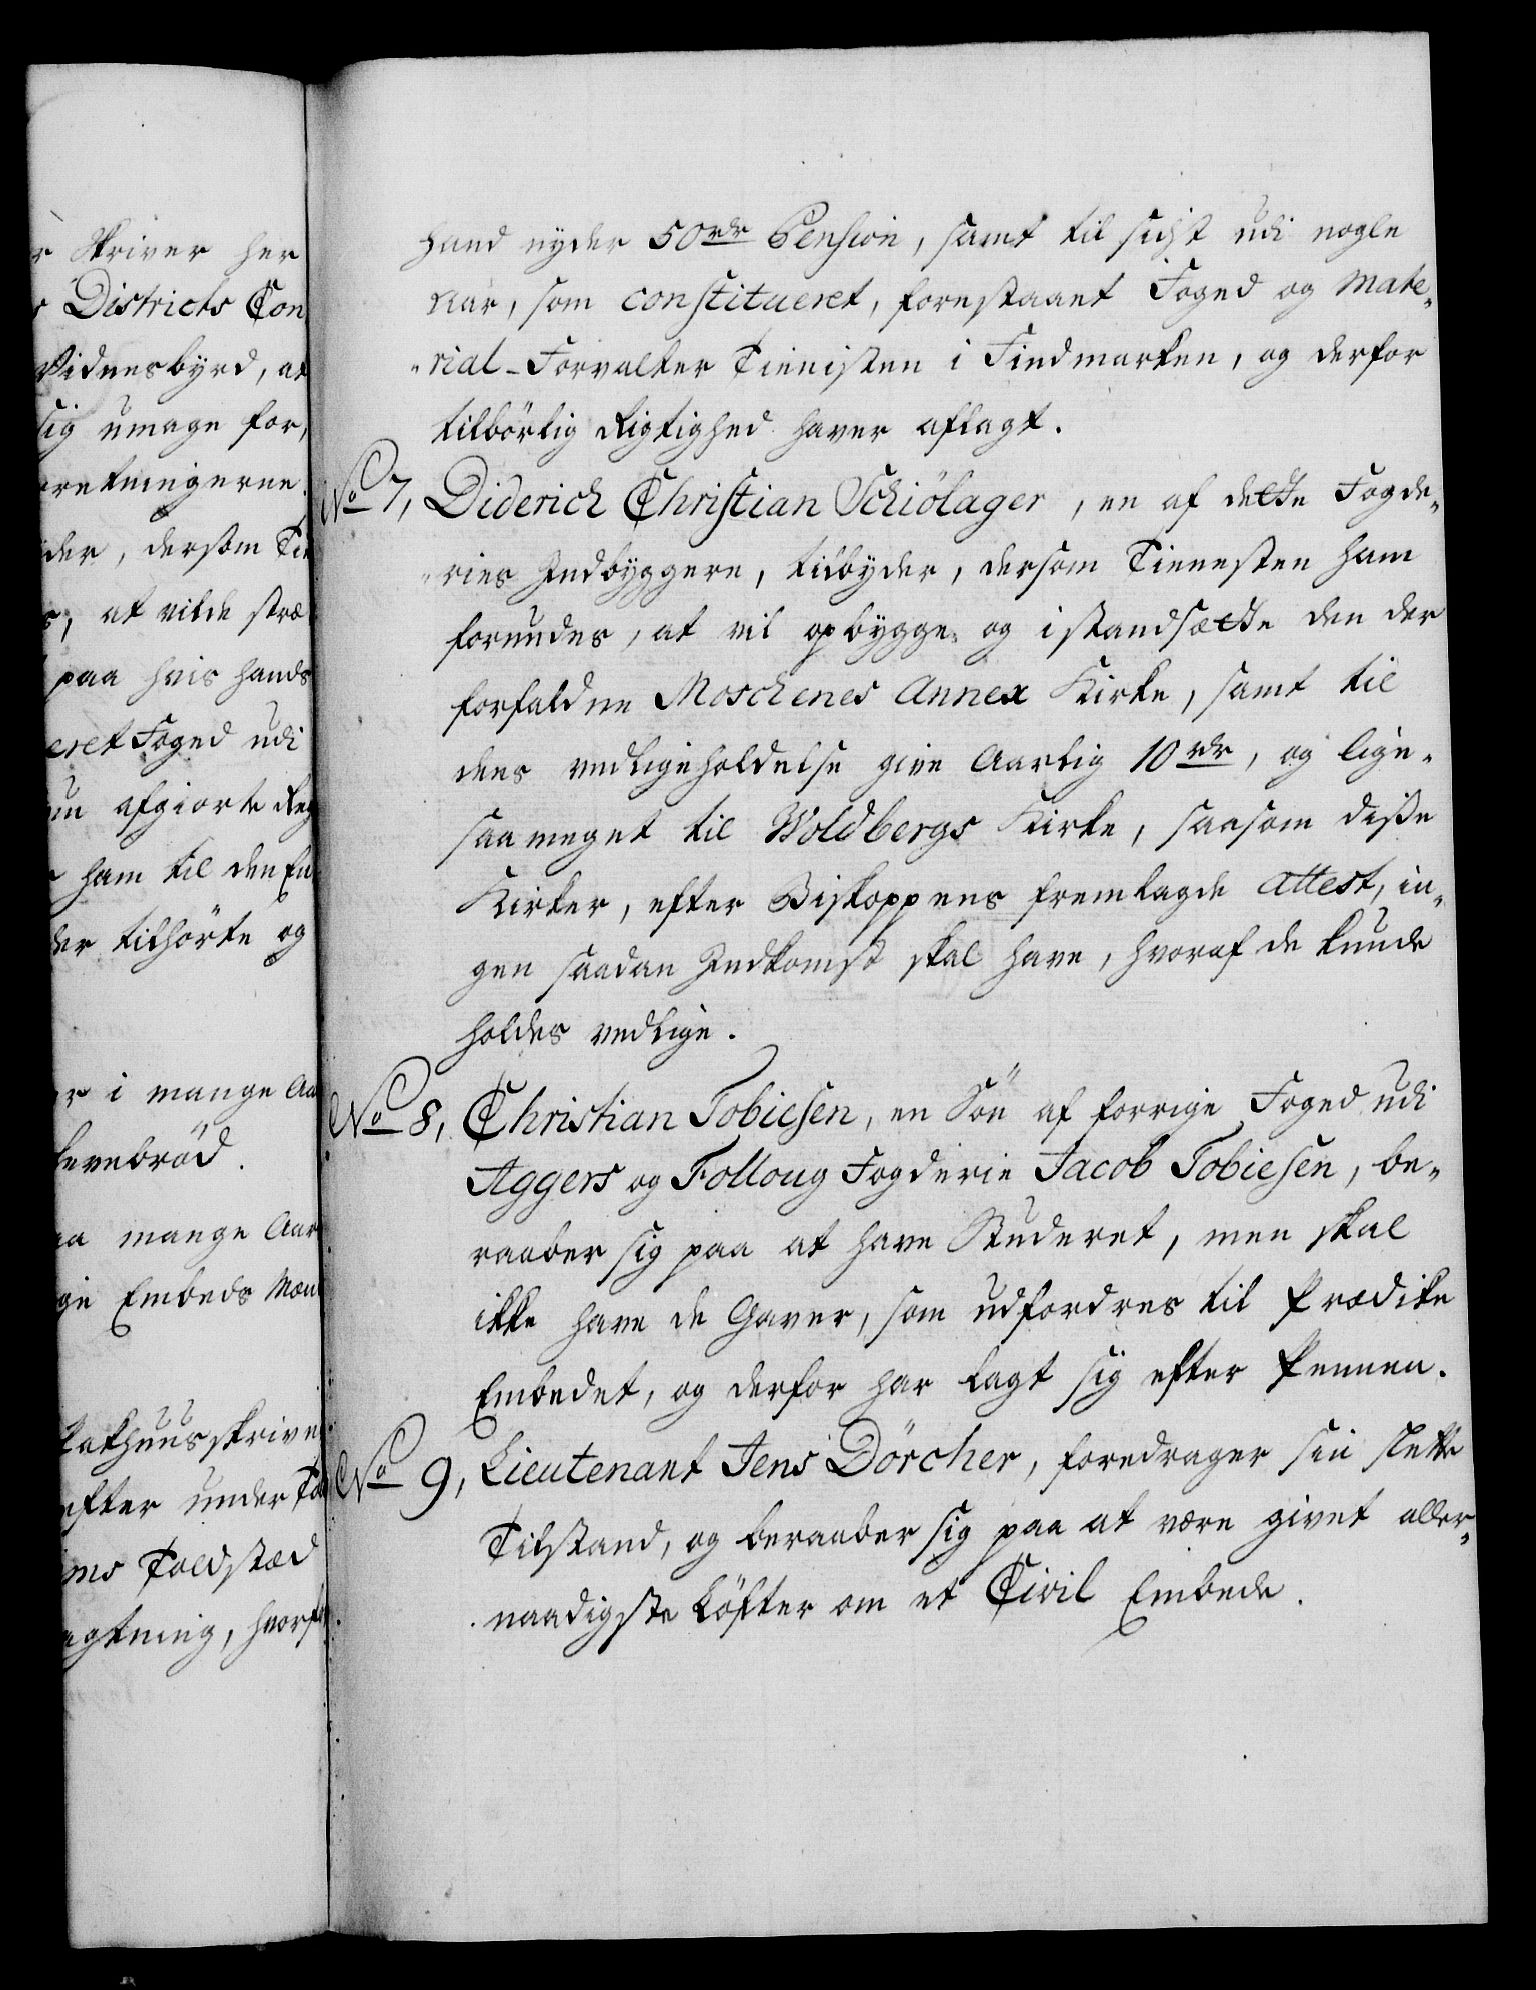 r Skriver her
s Districts Con
Vidnesbyrd, at
sig umage for,
retningerne.
der, dersom Tie
s, at vilde stræ
paa hvis hands
eret Foged udi
un afgiorte Reg
ham til den En
der tilhörte og
er i mange Aa
levebröd.
aa mange Aar
ge Embeds Mæn
Rathuusskrive
efter under To
ms Toldstæd
agtning, hvorf
hand nyder 50 rdr Pension, samt til sidst udi nogle
Aar, som constitueret, forestaaet Foged og Mate-
-rial-Forvalter Tienisten i Findmarken, og derfor
tilbörlig Rigtighed haver aflagt.
No 7, Diderich Christian Schiölager, en af dette Fogde-
-ries Indbyggere, tilbyder, dersom Tienesten ham
forundes, at vil opbygge og istandsætte den der
forfaldne Moschenes Annex Kirke, samt til
dens vedligeholdelse give Aarlig 10 rdr, og lige-
saa meget til Woldbergs Kirke, saasom disse
Kirker, efter Biskoppens fremlagde Attest, in-
gen saadan Indkomst skal have, hvoraf de kunde
holdes vedlige.
No 8, Christian Tobiesen, en Sön af forrige Foged udi
Aggers og Folloug Fogderie Jacob Tobiesen, be-
raaber sig paa at have Studeret, men skal
ikke have de Gaver, som udfordres til Prædike
Embedet, og derfor har lagt sig efter Pennen.
No 9, Lieutenant Jens Dörcher, foredrager sin slette
Tilstand, og beraaber sig paa at være givet aller-
naadigste Löfter om et Civil Embede.